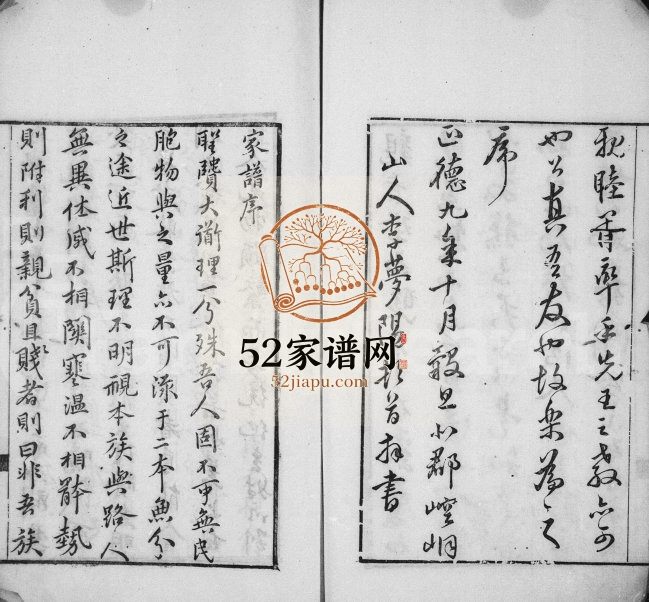 親睦昔率乎先王之教亦可
也公真吾友也故樂為之
序
正德九年十月穀旦北郡崆峒
山人李夢陽頓首拜書
家譜序
聖贒大衜理一分殊吾人固不可無民
胞物與之量亦不可淥于二本魚分之
之途近世斯理不明視本族與路人
無異休戚不相關寒温不相骵勢
則附利則親貧且賤者則曰非吾族
52家谱网
52jiapu.com